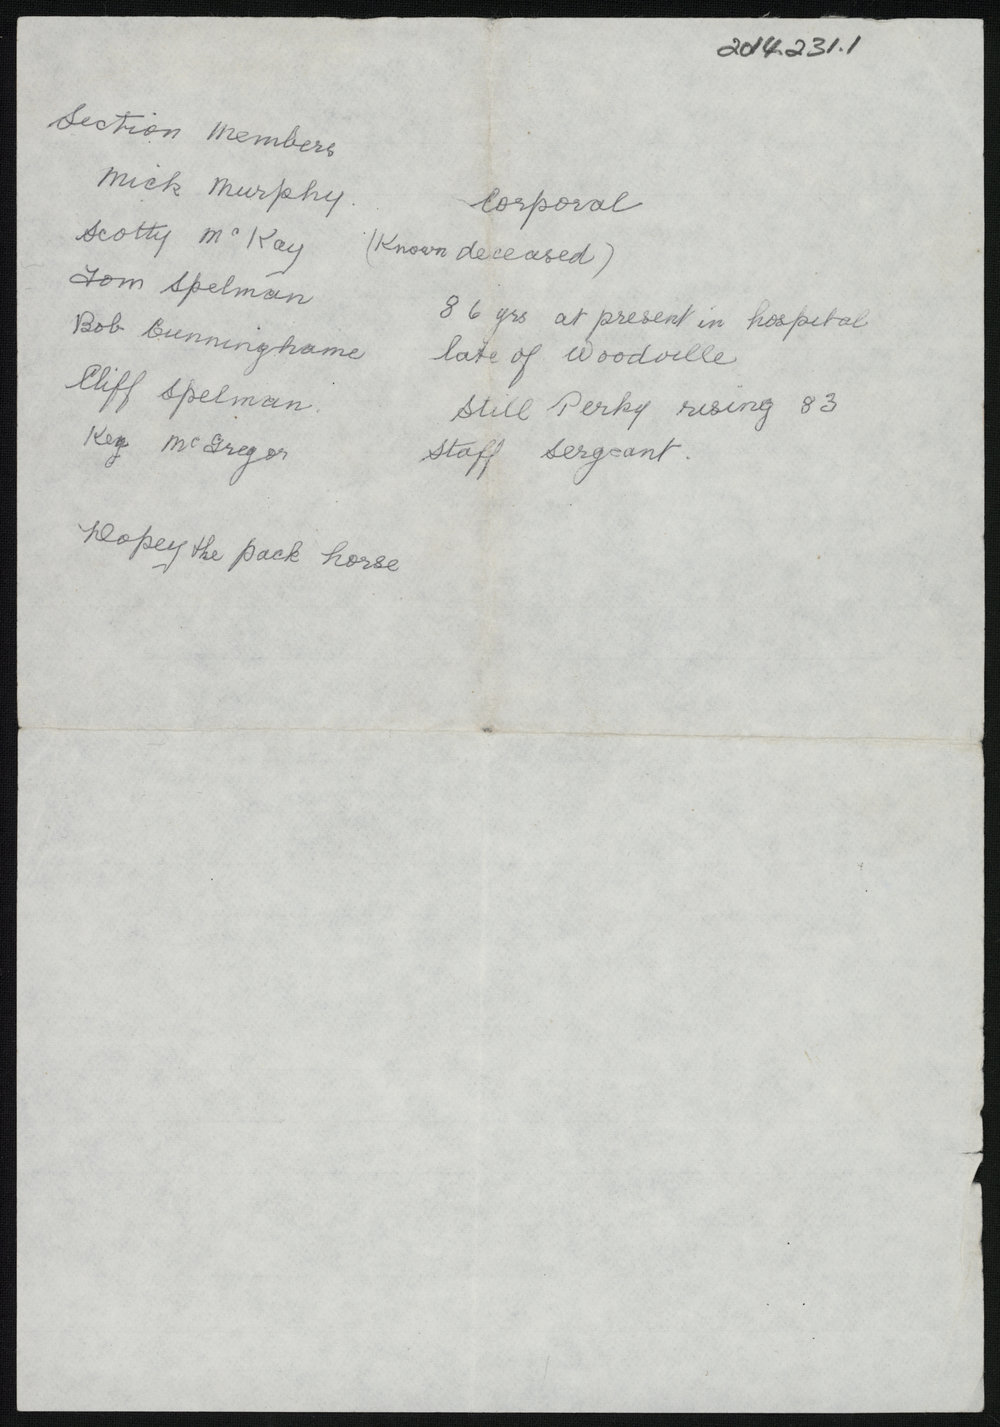 2014.231.1
Section Members
Mick Murphy. Corporal
Scotty McKay (Known deceased)
Tom Spelman 86 yrs at present in hospital
Bob Cunninghame late of Woodville
Cliff Spelman. Still Perky rising 83
Keg McGregor Staff Sergeant.
Dopey the pack horse